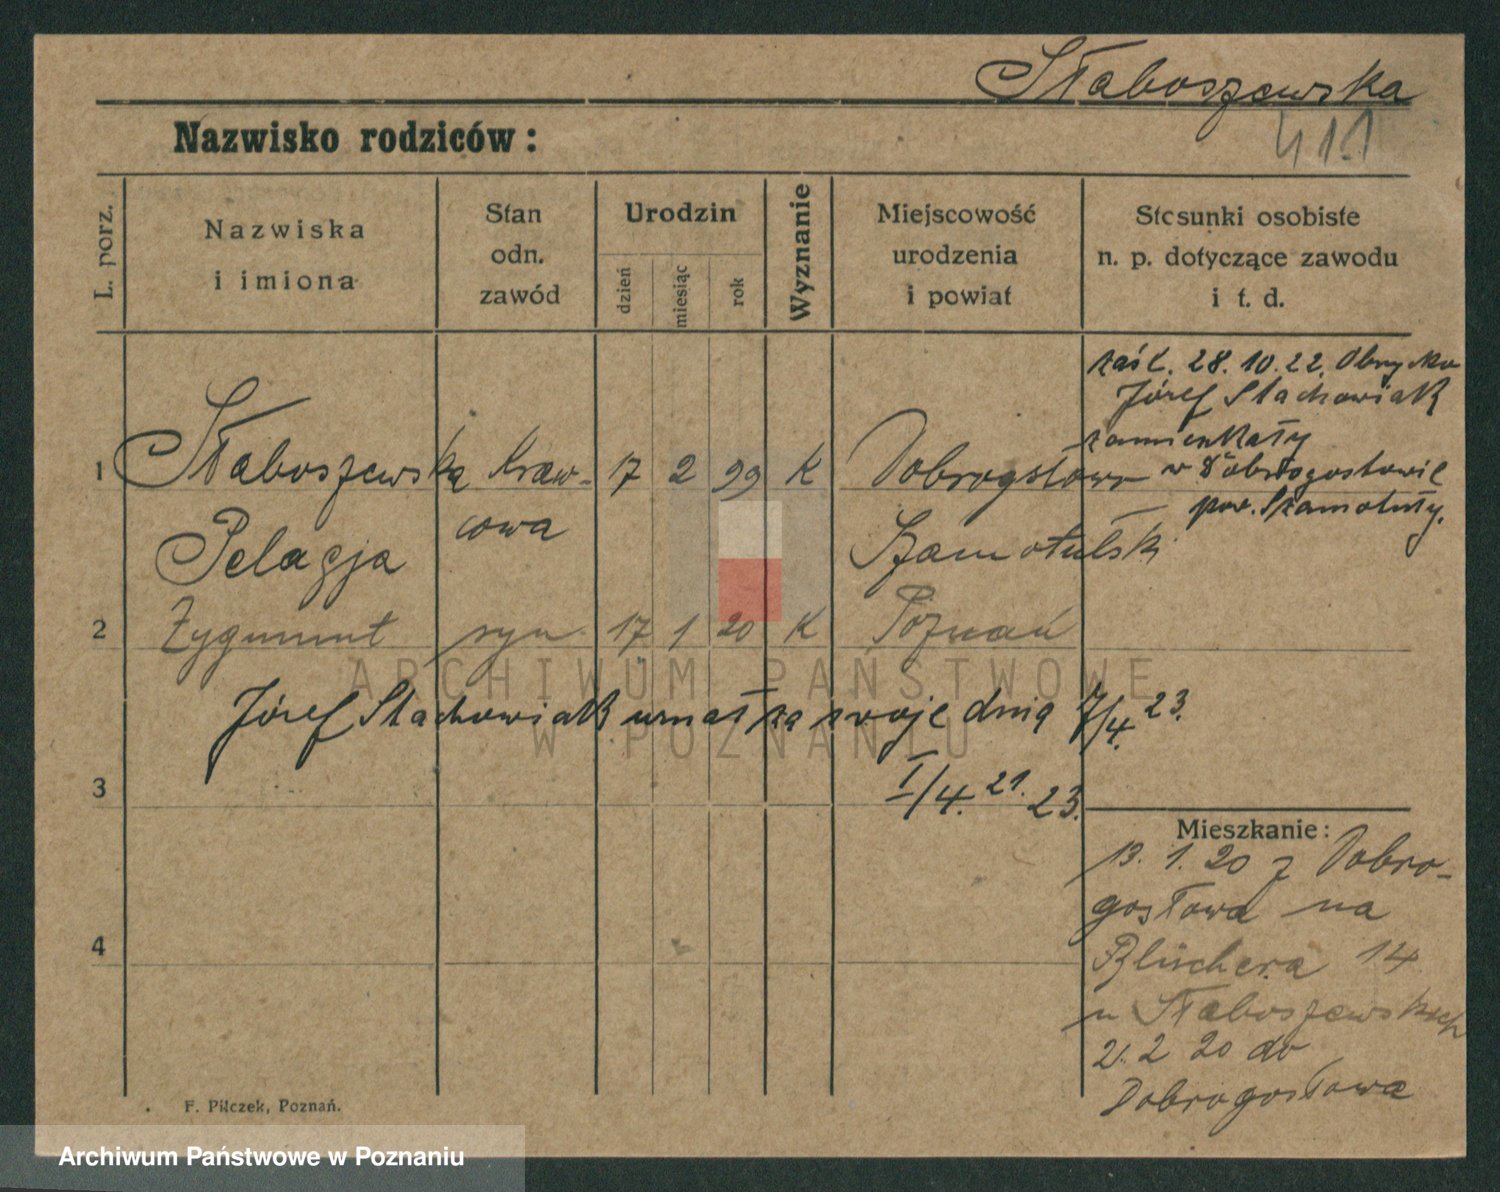 Słaboszewska
411
Nazwisko rodziców:
L. porz.
Nazwiska
i imiona
Stan
odn.
zawód
Urodzin
dzień
miesiąc
rok
Wyznanie
Miejscowość
urodzenia
i powiat
Stosunki osobiste
n. p. dotyczące zawodu
i t. d.
zaśl. 28. 10. 22. Obrycko
Józef Stachowiak
zamieszkały
w Dobrogostowie
pow. Szamotuły.
1 Słaboszewska Kraw- 17 2 99 K Dobrogostowo
cowa
Pelagja Szamotulski
2 Zygmunt syn 17 1 20 K Poznań
ARCHIWUM PAŃSTWOWE
W POZNANIU
Józef Stachowiak uznał za swoje dnia 7/4. 23.
3 I/4. 21. 23.
4
Mieszkanie:
13. 1. 20 z Dobro-
gostowa na
Blüchera 14
u Słaboszewskich
21. 2 20 do
Dobrogostowa
F. Pilczek, Poznań.
Archiwum Państwowe w Poznaniu